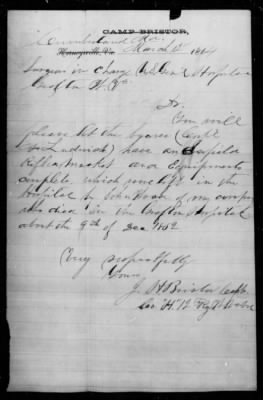 CAMP BRISTOR,
Cumberland Md.
Morrisville, Va. March 12 1864
Surgeon in Charge Genl Hospital
Grafton W. Va
Sir
You will
please let the bearer (Corpl
Ludwick) have an Enfield
Rifle musket and Equipments
complete, which were left in the
Hospital by John of my company
who died in the Grafton Hospital
about the 9th of Dec 1862
Very respectfully
Yours
J. H. Bristor Capt
Co. "H" 12 Regt